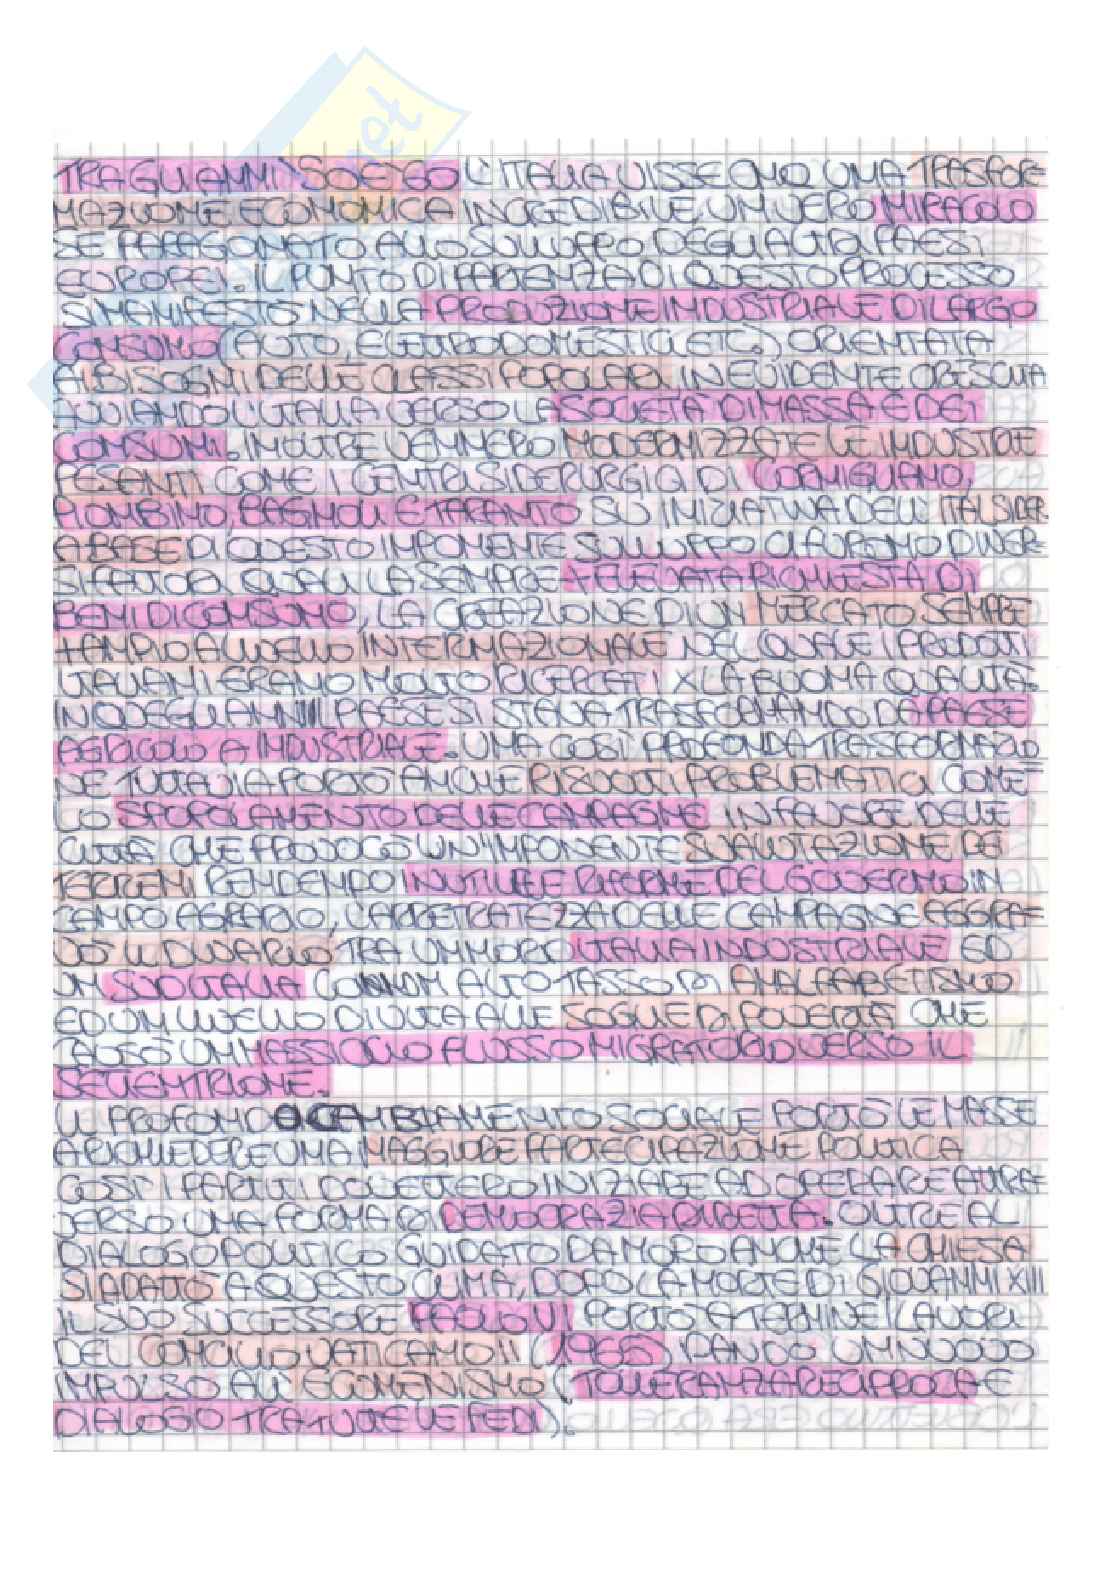 TRA GLI ANNI '50 E '60 L'ITALIA VISSE UNA TRASFOR
MAZIONE ECONOMICA INCREDIBILE, UN VERO MIRACOLO
SE PARAGONATO ALLO SVILUPPO DEGLI ALTRI PAESI
EUROPEI. IL PUNTO DI PARTENZA DI QUESTO PROCESSO
SI MANIFESTÒ NELLA PRODUZIONE INDUSTRIALE DI LARGO
CONSUMO (AUTO, ELETTRODOMESTICI, ETC.) ORIENTATA
AI BISOGNI DELLE CLASSI POPOLARI, IN EVIDENTE CRESCITA
AVVIANDO L'ITALIA VERSO LA SOCIETÀ DI MASSA E DEI
CONSUMI. INOLTRE VENNERO MODERNIZZATE LE INDUSTRIE
PESANTI COME I CENTRI SIDERURGICI DI CORNIGLIANO,
PIOMBINO, BAGNOLI E TARANTO SU INIZIATIVA DELL'ITALSIDER.
A BASE DI QUESTO IMPONENTE SVILUPPO CI FURONO DIVER
SI FATTORI QUALI LA SEMPRE + ELEVATA RICHIESTA DI
BENI DI CONSUMO, LA CREAZIONE DI UN MERCATO SEMPRE
+ AMPIO A LIVELLO INTERNAZIONALE NEL QUALE I PRODOTTI
ITALIANI ERANO MOLTO RICERCATI X LA BUONA QUALITÀ.
IN QUEGLI ANNI IL PAESE SI STAVA TRASFORMANDO DA PAESE
AGRICOLO A INDUSTRIALE. UNA COSÌ PROFONDA TRASFORMAZIO
NE TUTTAVIA PORTÒ ANCHE RISVOLTI PROBLEMATICI COME
LO SPOPOLAMENTO DELLE CAMPAGNE IN FAVORE DELLE
CITTÀ CHE PROVOCÒ UN'IMPONENTE SVALUTAZIONE DEI
TERRENI RENDENDO INUTILI LE RIFORME DEL GOVERNO IN
CAMPO AGRARIO, L'ARRETRATEZZA DELLE CAMPAGNE AGGRA
VÒ IL DIVARIO TRA UN NORD ITALIA INDUSTRIALE ED
UN SUD ITALIA CON UN ALTO TASSO DI ANALFABETISMO
ED UN LIVELLO DI VITA ALLE SOGLIE DI POVERTÀ CHE
CAUSÒ UN MASSICCIO FLUSSO MIGRATORIO VERSO IL
SETTENTRIONE.
IL PROFONDO CAMBIAMENTO SOCIALE PORTÒ LE MASSE
A RICHIEDERE UNA MAGGIORE PARTECIPAZIONE POLITICA
COSÌ I PARTITI DOVETTERO INIZIARE AD OPERARE ATTRA
VERSO UNA FORMA DI DEMOCRAZIA DIRETTA. OLTRE AL
DIALOGO POLITICO GUIDATO DA MORO ANCHE LA CHIESA
SI ADATTÒ A QUESTO CLIMA, DOPO LA MORTE DI GIOVANNI XIII
IL SUO SUCCESSORE PAOLO VI PORTÒ A TERMINE I LAVORI
DEL CONCILIO VATICANO II (1965) DANDO UN NUOVO
IMPULSO ALL'ECUMENISMO (TOLLERANZA RECIPROCA E
DIALOGO TRA TUTTE LE FEDI).